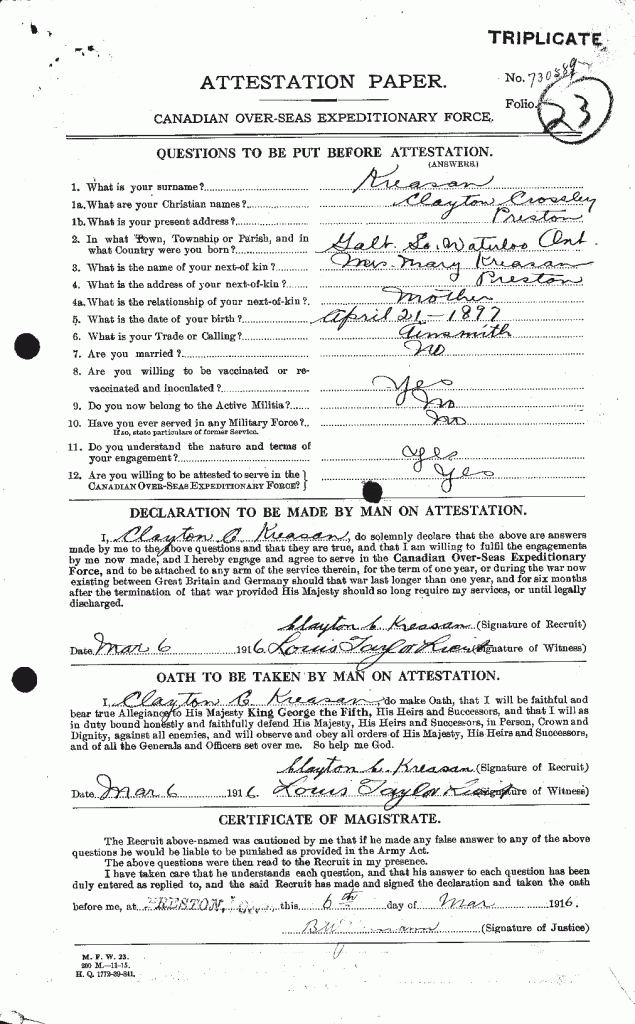 TRIPLICATE
No. 730389
ATTESTATION PAPER.
Folio. 23
CANADIAN OVER-SEAS EXPEDITIONARY FORCE.
QUESTIONS TO BE PUT BEFORE ATTESTATION.
(ANSWERS.)
1. What is your surname? Kreasan
1a. What are your Christian names? Clayton Crossley
1b. What is your present address? Preston
2. In what Town, Township or Parish, and in
what Country were you born? Galt. So. Waterloo Ont.
3. What is the name of your next-of kin? Mrs. Mary Kreasan
4. What is the address of your next-of-kin? Preston
4a. What is the relationship of your next-of-kin? Mother
5. What is the date of your birth? April 21-1897
6. What is your Trade or Calling? Tinsmith
7. Are you married? No
8. Are you willing to be vaccinated or re-
vaccinated and inoculated? Yes
9. Do you now belong to the Active Militia? No
10. Have you ever served in any Military Force? No
If so, state particulars of former Service.
11. Do you understand the nature and terms of
your engagement? Yes
12. Are you willing to be attested to serve in the
CANADIAN OVER-SEAS EXPEDITIONARY FORCE? Yes
DECLARATION TO BE MADE BY MAN ON ATTESTATION.
I, Clayton C Kreasan, do solemnly declare that the above are answers
made by me to the above questions and that they are true, and that I am willing to fulfil the engagements
by me now made, and I hereby engage and agree to serve in the Canadian Over-Seas Expeditionary
Force, and to be attached to any arm of the service therein, for the term of one year, or during the war now
existing between Great Britain and Germany should that war last longer than one year, and for six months
after the termination of that war provided His Majesty should so long require my services, or until legally
discharged.
Clayton C. Kreasan (Signature of Recruit)
Date Mar 6 1916. Louis Taylor Lieut (Signature of Witness)
OATH TO BE TAKEN BY MAN ON ATTESTATION.
I, Clayton C Kreasan do make Oath, that I will be faithful and
bear true Allegiance to His Majesty King George the Fifth, His Heirs and Successors, and that I will as
in duty bound honestly and faithfully defend His Majesty, His Heirs and Successors, in Person, Crown and
Dignity, against all enemies, and will observe and obey all orders of His Majesty, His Heirs and Successors,
and of all the Generals and Officers set over me. So help me God.
Clayton C. Kreasan (Signature of Recruit)
Date Mar 6 1916 Louis Taylor Lieut (Signature of Witness)
CERTIFICATE OF MAGISTRATE.
The Recruit above-named was cautioned by me that if he made any false answer to any of the above
questions he would be liable to be punished as provided in the Army Act.
The above questions were then read to the Recruit in my presence.
I have taken care that he understands each question, and that his answer to each question has been
duly entered as replied to, and the said Recruit has made and signed the declaration and taken the oath
before me, at PRESTON, this 6th day of Mar 1916.
(Signature of Justice)
M. F. W. 23.
200 M.-11-15.
H. Q. 1772-39-841.